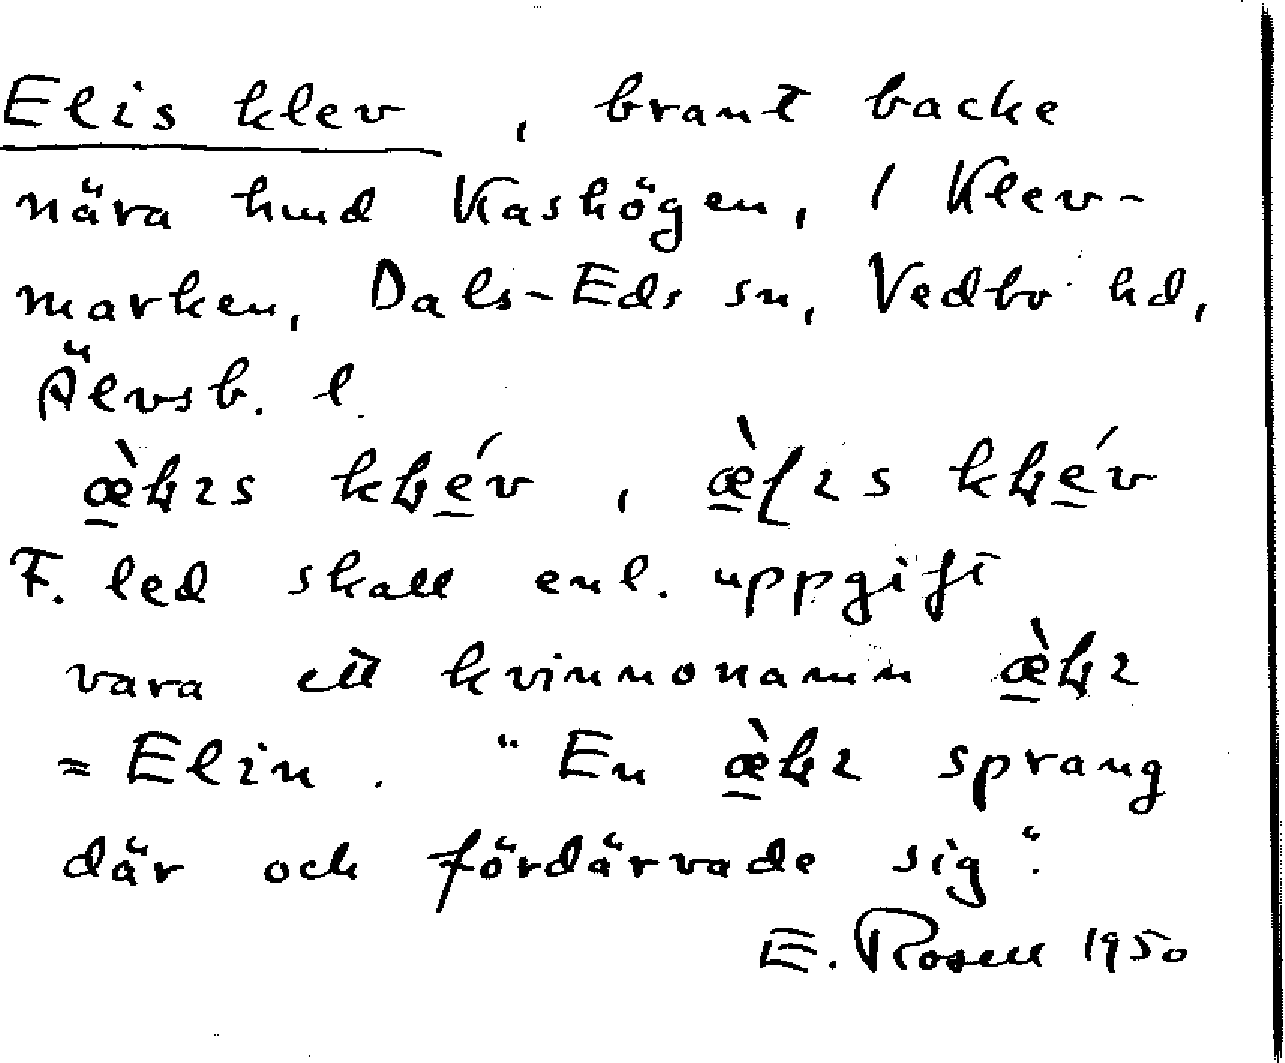 Elis klev, brant backe
nära hmd Kashögen, / Klev-
marken, Dals-Eds sn, Vedbo hd,
Älvsb. l.
F. led skall enl. uppgift
vara ett kvinnonamn
= Elin. "En sprang
där och fördärvade sig".
E. Rosell 1950